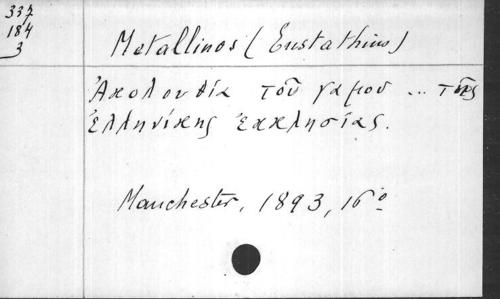 337
184
3
Metallinos (Eustathius)
Ἀκολουθία τοῦ γάμου ... τῆς
Ἑλληνίκης Ἐκκλησίας.
Manchester, 1893, 16º